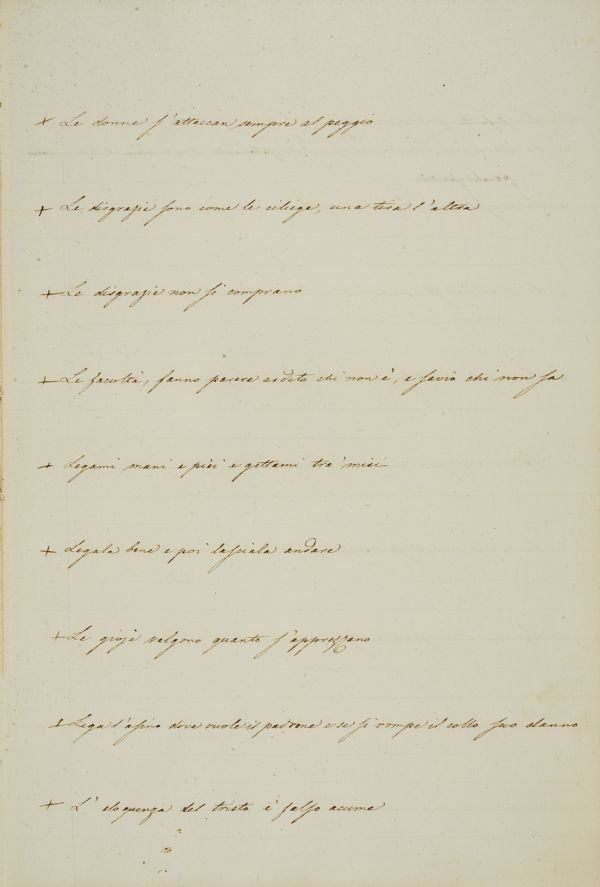 + Le donne s'attaccan sempre al peggio
+ Le disgrazie sono come le ciliege, una tira l'altra
+ Le disgrazie non si comprano
+ Le facoltà, fanno parere ardito chi non è, e savio chi non sa
+ Legami mani e piei e gettami tra' miei
+ Legala bene e poi lasciala andare
+ Le gioje valgono quanto s'apprezzano
+ Lega l'asino dove vuole il padrone e se si rompe il collo suo danno
+ L'eloquenza del tristo è falso acume